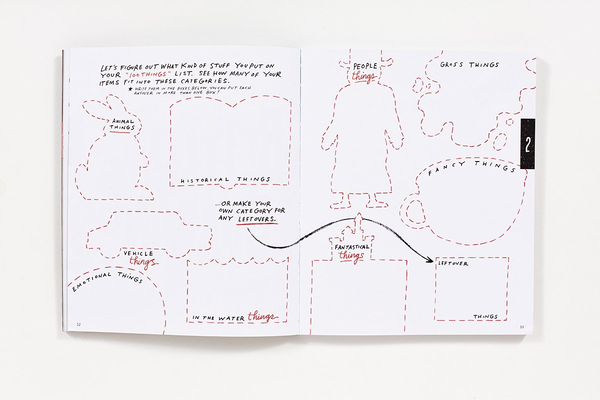 LET'S FIGURE OUT WHAT KIND OF STUFF YOU PUT ON
YOUR "100 THINGS" LIST. SEE HOW MANY OF YOUR
ITEMS FIT INTO THESE CATEGORIES.
★ WRITE THEM IN THE BOXES BELOW. YOU CAN PUT EACH
ANSWER IN MORE THAN ONE BOX!
ANIMAL
THINGS
HISTORICAL THINGS
...OR MAKE YOUR
OWN CATEGORY FOR
ANY LEFTOVERS.
VEHICLE
things
EMOTIONAL THINGS
IN THE WATER things
PEOPLE
things
GROSS THINGS
2
FANCY THINGS
FANTASTICAL
things
LEFTOVER
THINGS